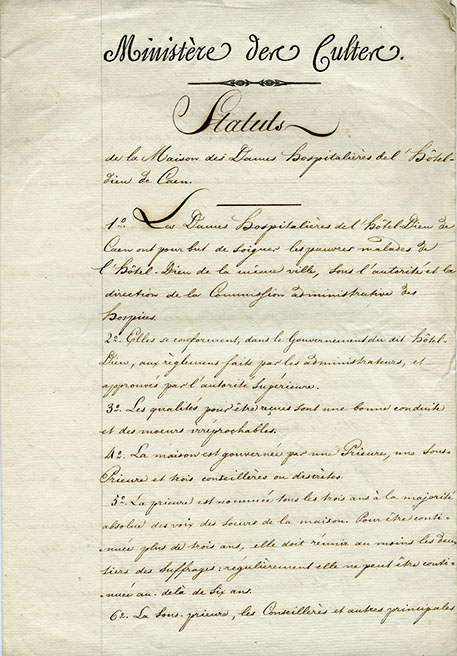 Ministère des Cultes.
Statuts
de la Maison des Dames hospitalières de l'hôtel-
dieu de Caen.
1o. Les Dames hospitalières de l'hôtel Dieu de
Caen ont pour but de soigner les pauvres malades de
l'hôtel-Dieu de la même ville, sous l'autorité et la
direction de la Commission administrative des
hospices.
2o. Elles se conforment, dans le Gouvernement du dit hôtel-
Dieu, aux règlemens faits par les administrateurs, et
approuvés par l'autorité Supérieure.
3o. Les qualités pour être reçues sont une bonne conduite
et des moeurs irréprochables.
4o. La maison est gouvernée par une Prieure, une Sous-
Prieure et trois conseillères ou discrètes.
5o. La prieure est nommée tous les trois ans à la majorité
absolue des voix des soeurs de la maison. Pour être conti-
nuée plus de trois ans, elle doit réunir au moins les deux
tiers des suffrages: regulierement elle ne peut être conti-
nuée au-delà de six ans.
6o. La Sous-prieure, les Conseillères et autres principales